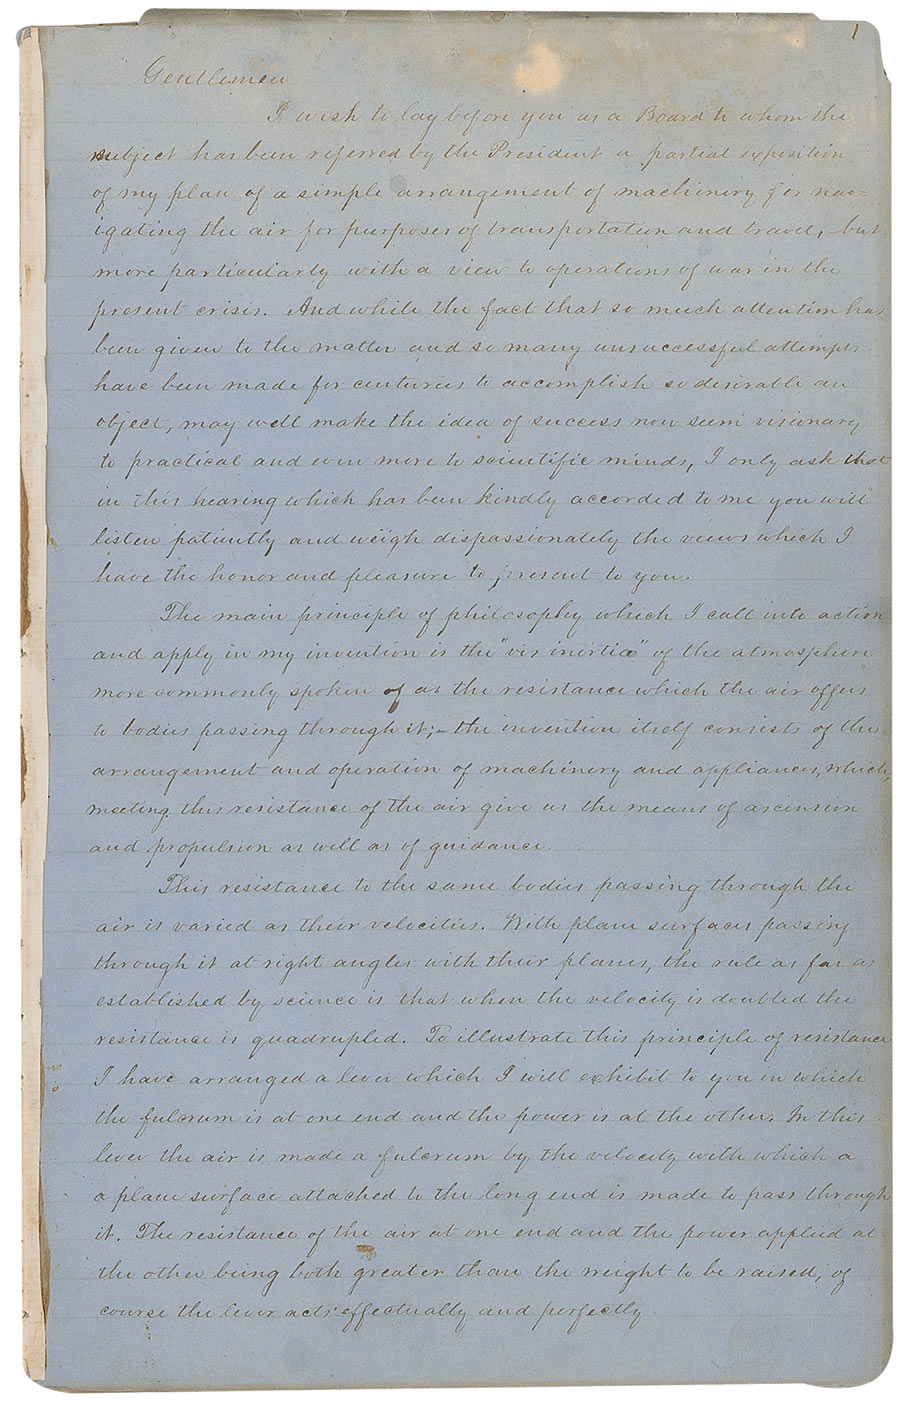 1
Gentlemen
I wish to lay before you as a Board to whom the
subject has been referred by the President a partial exposition
of my plan of a simple arrangement of machinery for nav=
igating the air for purposes of transportation and travel, but
more particularly with a view to operations of war in the
present crisis. And while the fact that so much attention has
been given to the matter and so many unsuccessful attempts
have been made for centuries to accomplish so desirable an
object, may well make the idea of success now seem visionary
to practical and even more to scientific minds, I only ask that
in this hearing which has been kindly accorded to me you will
listen patiently and weigh dispassionately the views which I
have the honor and pleasure to present to you.
The main principle of philosophy which I call into action
and apply in my invention is the "vis inertiæ" of the atmosphere
more commonly spoken of as the resistance which the air offers
to bodies passing through it;– the invention itself consists of the
arrangement and operation of machinery and appliances, which,
meeting this resistance of the air give us the means of ascension
and propulsion as well as of guidance.
This resistance to the same bodies passing through the
air is varied as their velocities. With plane surfaces passing
through it at right angles with their planes, the rule as far as
established by science is that when the velocity is doubled the
resistance is quadrupled. To illustrate this principle of resistance
I have arranged a lever which I will exhibit to you in which
the fulcrum is at one end and the power is at the other. In this
lever the air is made a fulcrum by the velocity with which a
a plane surface attached to the long end is made to pass through
it. The resistance of the air at one end and the power applied at
the other being both greater than the weight to be raised, of
course the lever acts effectually and perfectly